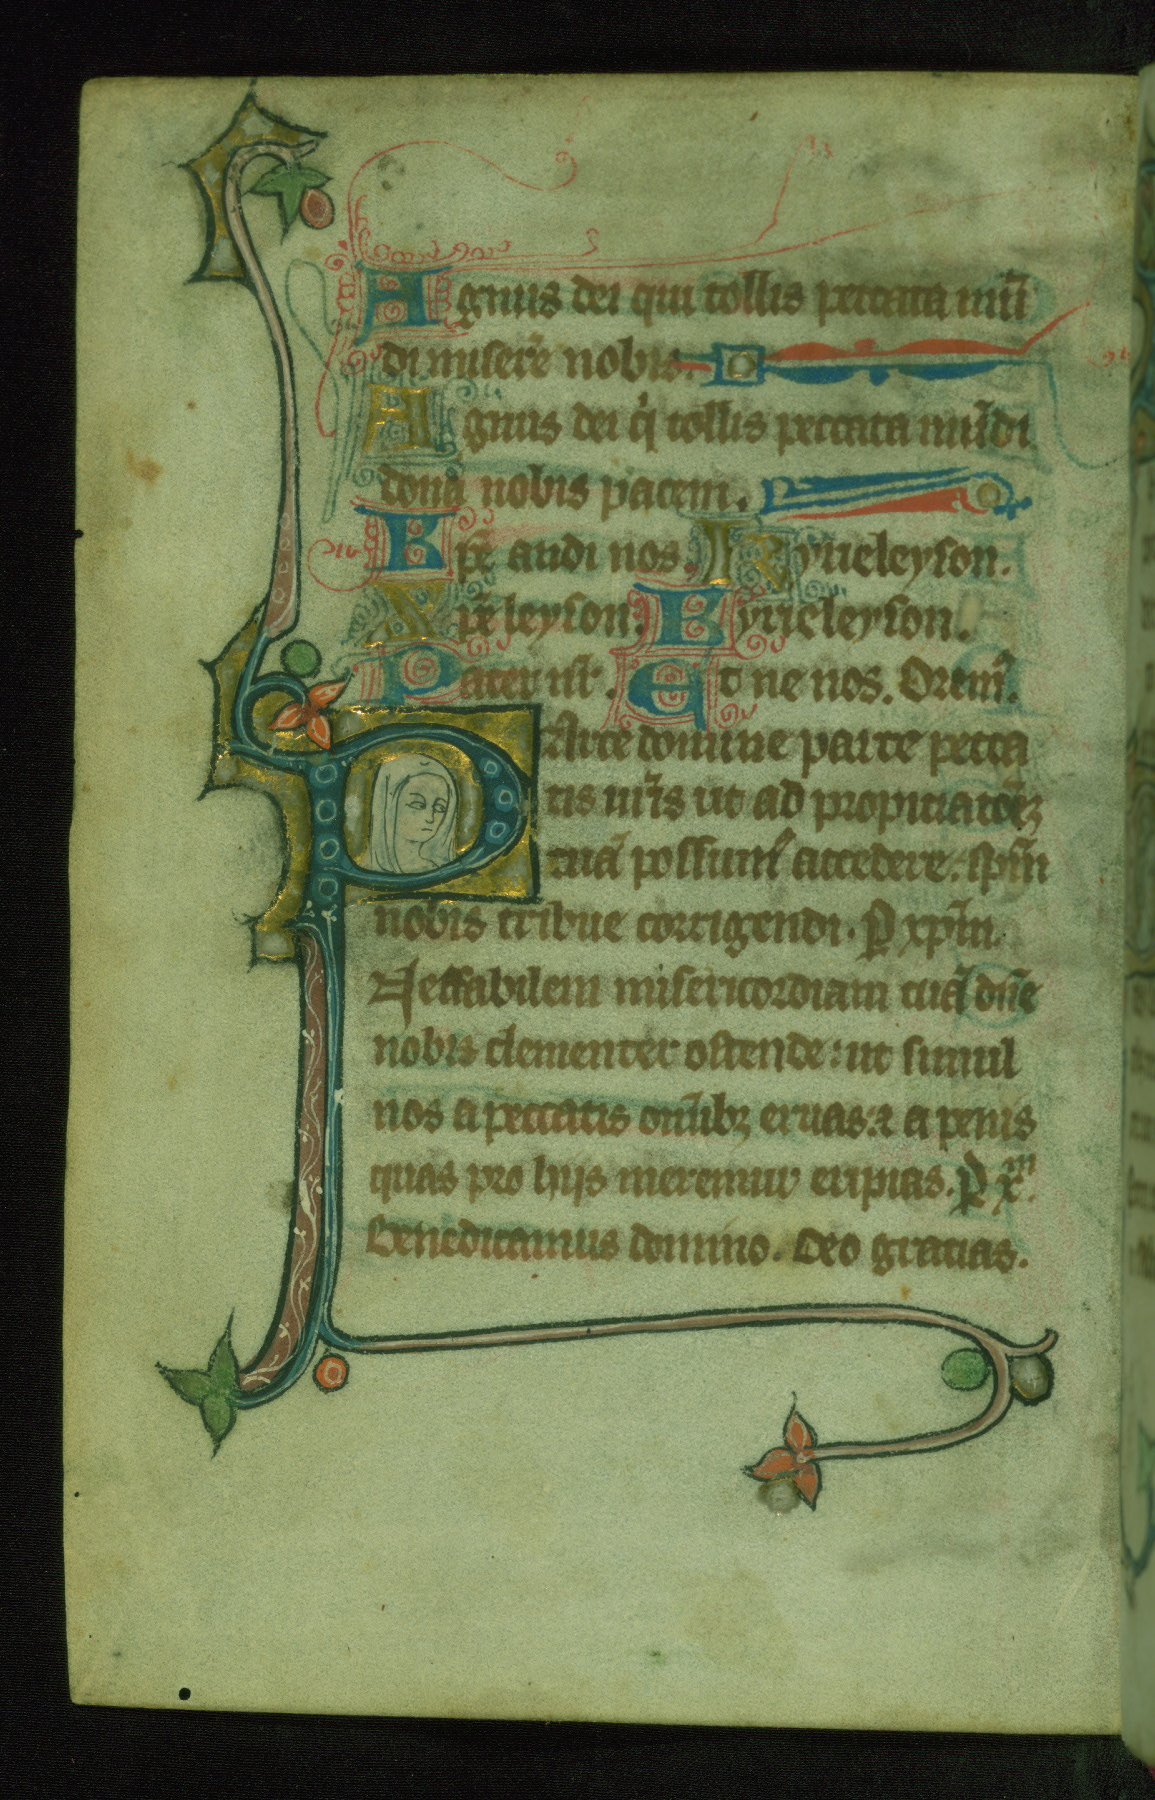 Agnus dei qui tollis peccata mū
di miserē nobis.
Agnus dei q̇ tollis peccata mūdi
dona nobis pacem.
Xpē audi nos. Kyrieleyson.
Xpē leyson. Kyrieleyson.
Pater nr̄. Et ne nos. Orem̄.
Parce domine parce pecca
tis nr̄is ut ad propitiatōēꝫ
tuā possim᷒ accedere. spm̄
nobis tribue corrigendi. P xpm̄.
Ineffabilem misericordiam tuā dn̄e
nobis clementer ostende: ut simul
nos a peccatis om̄ibꝫ eruas: ⁊ a penis
quas pro hijs meremur eripias. P xͫ.
Benedicamus domino. Deo gratias.